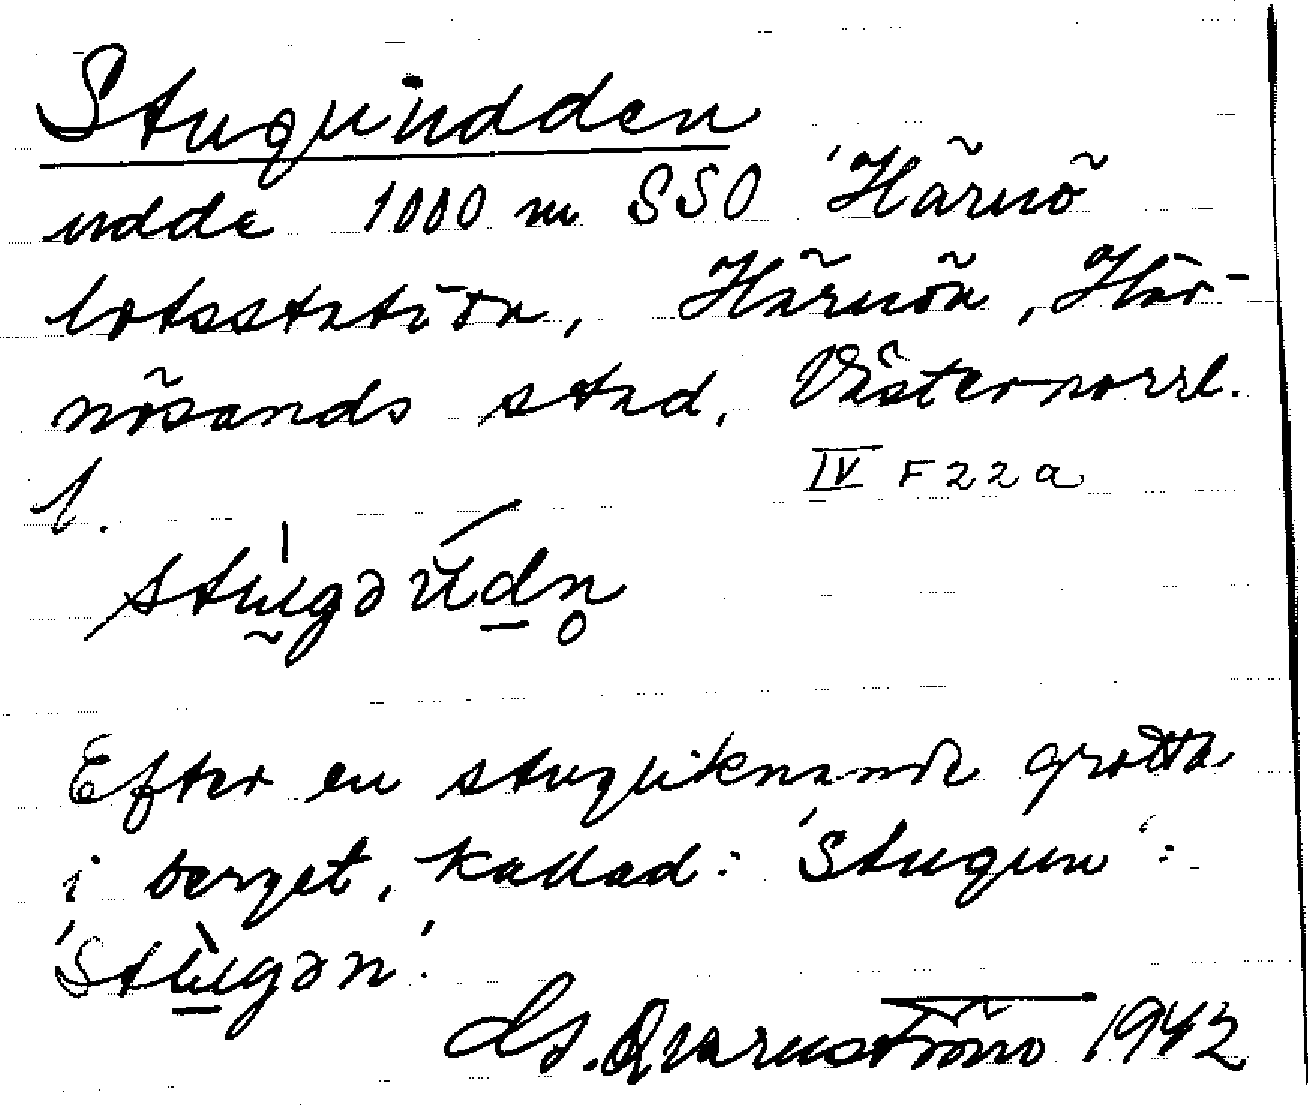 Stuguudden
udde 1000 m SSO 'Härnö
lotsstation, Härnön, Här-
nösands stad, Västernorrl.
l.
IV F22a
stu̍gəúdn̥
Efter en stuguliknande grotta
i berget, kallad: 'Stugun':
'Stùgən'.
Qvarnström 1942